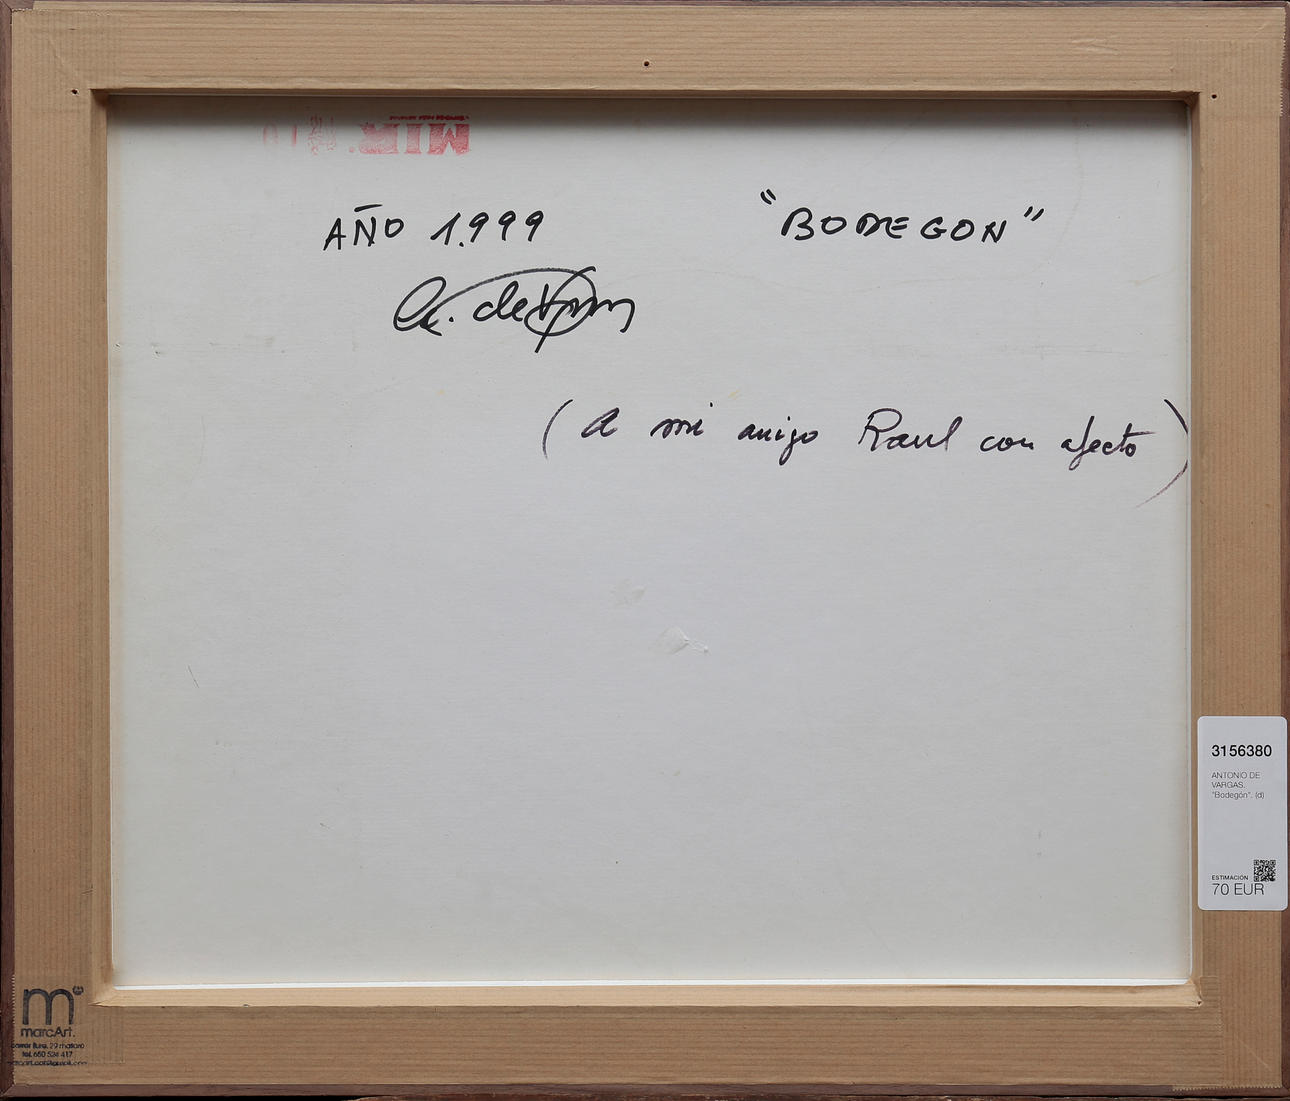 MIR
AÑO 1.999
"BODEGON"
(A mi amigo Raul con afecto)
3156380
ANTONIO DE
VARGAS.
"Bodegón". (d)
ESTIMACIÓN
70 EUR
m
marcArt.
tel. 650 524 417